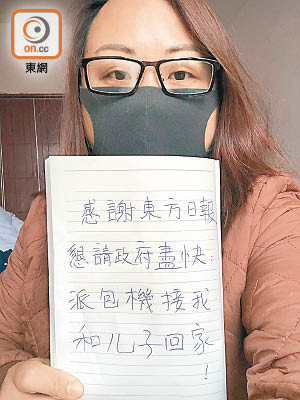 on.cc
東網
感謝東方日報
懇請政府盡快:
派包機接我
和儿子回家
!